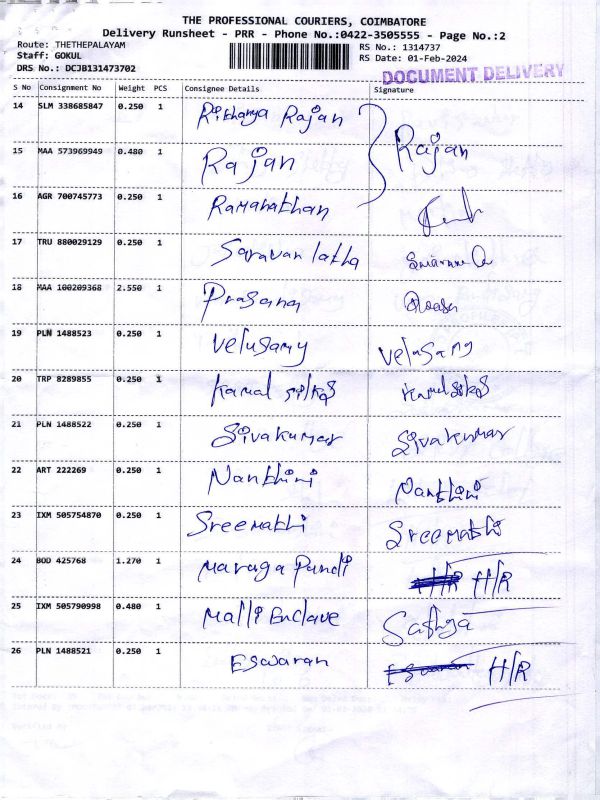 THE PROFESSIONAL COURIERS, COIMBATORE
Delivery Runsheet - PRR - Phone No.:0422-3505555 - Page No.:2
Route: THETHEPALAYAM RS No.: 1314737
Staff: GOKUL RS Date: 01-Feb-2024
DRS No.: DCJB131473702 DOCUMENT DELIVERY
S No Consignment No Weight PCS Consignee Details Signature
14 SLM 338685847 0.250 1 Rithanya Rajan
15 MAA 573969949 0.480 1 Rajan Rajan
16 AGR 700745773 0.250 1 Ramanathan
17 TRU 880029129 0.250 1 Saravan latha
18 MAA 100209368 2.550 1 Prasana
19 PLN 1488523 0.250 1 Velusamy Velusamy
20 TRP 8289855 0.250 1 Kamal silks Kamal silks
21 PLN 1488522 0.250 1 Sivakumar Sivakumar
22 ART 222269 0.250 1 Nanthini Nanthini
23 IXM 505754870 0.250 1 Sreemathi Sreemathi
24 BOD 425768 1.270 1 Maruga Pandi H/R H/R
25 IXM 505790998 0.480 1 Malli Enclave Sathya
26 PLN 1488521 0.250 1 Eswaran Eswaran H/R